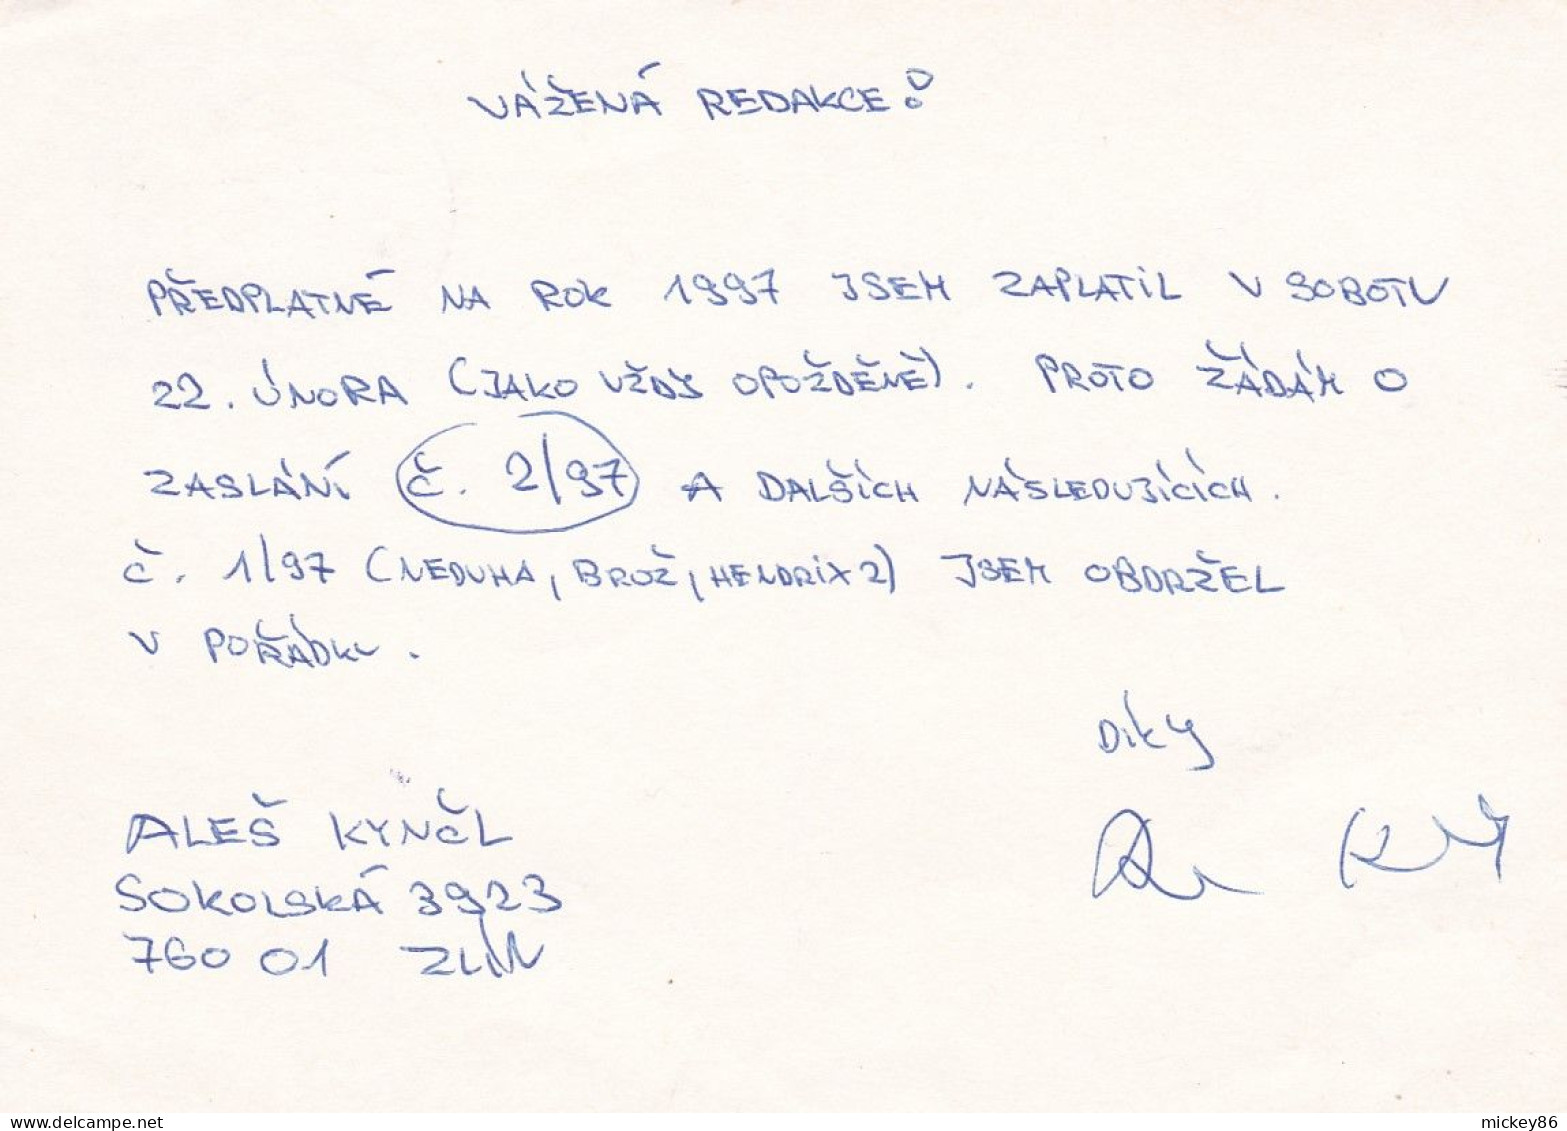 VÁŽENÁ REDAKCE!
PŘEDPLATNÉ NA ROK 1997 JSEM ZAPLATIL V SOBOTU
22. ÚNORA (JAKO VŽDY OPOŽDĚNĚ). PROTO ŽÁDÁM O
ZASLÁNÍ č. 2/97 A DALŠÍCH NÁSLEDUJÍCÍCH.
Č. 1/97 (NEDUHA, BROŽ, HENDRIX 2) JSEM OBDRŽEL
V POŘÁDKU.
DÍKY
ALEŠ KYNČL
SOKOLSKÁ 3923
760 01 ZLÍN
mickey86